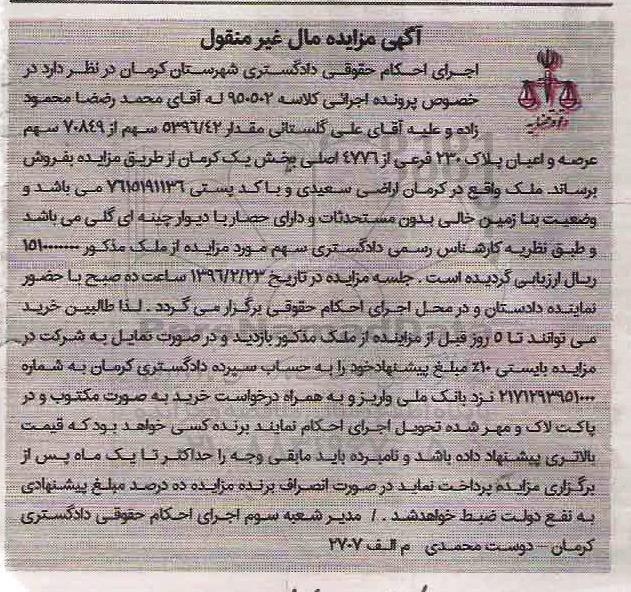 آگهی مزایده مال غیر منقول
اجرای احکام حقوقی دادگستری شهرستان کرمان در نظر دارد در
خصوص پرونده اجرائی کلاسه ۹۵۰۵۰۲ له آقای محمد رضضا محمود
زاده و علیه آقای علی گلستانی مقدار ۵۳۹۶/۴۲ سهم از ۷۰۸۴۹ سهم
عرصه و اعیان پلاک ۲۳۰ فرعی از ۴۷۷۶ اصلی بخش یک کرمان از طریق مزایده بفروش
برساند. ملک واقع در کرمان اراضی سعیدی و با کد پستی ۷۶۱۵۱۹۱۱۳۶ می باشد و
وضعیت بنا زمین خالی بدون مستحدثات و دارای حصار با دیوار چینه ای گلی می باشد
و طبق نظریه کارشناس رسمی دادگستری سهم مورد مزایده از ملک مذکور
ریال ارزیابی گردیده است . جلسه مزایده در تاریخ ۱۳۹۶/۲/۲۳ ساعت ده صبح با حضور
نماینده دادستان و در محل اجرای احکام حقوقی برگزار می گردد . لذا طالبین خرید
می توانند تا ۵ روز قبل از مزاینده از ملک مذکور بازدید و در صورت تمایل به شرکت در
مزایده بایستی ۱۰٪ مبلغ پیشنهادخود را به حساب سپرده دادگستری کرمان به شماره
۲۱۷۱۲۹۳۹۵۱۰۰۰ نزد بانک ملی واریز و به همراه درخواست خرید به صورت مکتوب و در
پاکت لاک و مهر شده تحویل اجرای احکام نمایند برنده کسی خواهد بود که قیمت
بالاتری پیشنهاد داده باشد و نامبرده باید مابقی وجه را حداکثر تا یک ماه پس از
برگزاری مزایده پرداخت نماید در صورت انصراف برنده مزایده ده درصد مبلغ پیشنهادی
به نفع دولت ضبط خواهدشد . / مدیر شعبه سوم اجرای احکام حقوقی دادگستری
کرمان – دوست محمدی م الف ۲۷۰۷